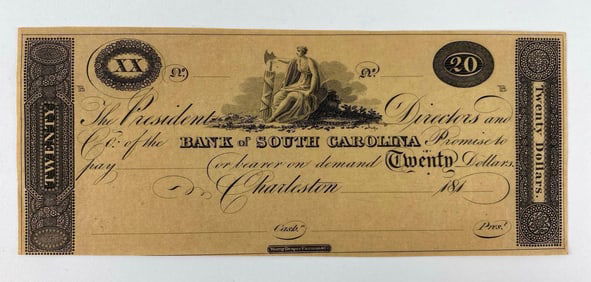 XX No. No. 20
TWENTY
The President Directors and
Co. of the BANK of SOUTH CAROLINA Promise to
pay or bearer on demand Twenty Dollars.
Charleston 181
Cash.r Pres.t
Twenty Dollars.